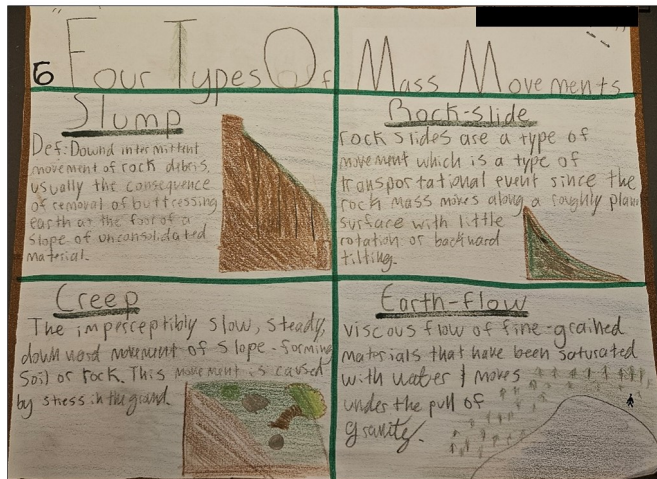 6 Four Types Of Mass Movements
Slump
Def: Downd intermittent
movement of rock debris,
usually the consequence
of removal of buttressing
earth at the foot of a
slope of unconsolidated
material.
Rock-slide
rock slides are a type of
movement which is a type of
transportational event since the
rock mass moves along a roughly planar
surface with little
rotation or backward
tilting.
Creep
The imperceptibly slow, steady,
downward movement of slope-forming
soil or rock. This movement is caused
by stress in the ground.
Earth-flow
viscous flow of fine-grained
materials that have been saturated
with water & moves
under the pull of
gravity.